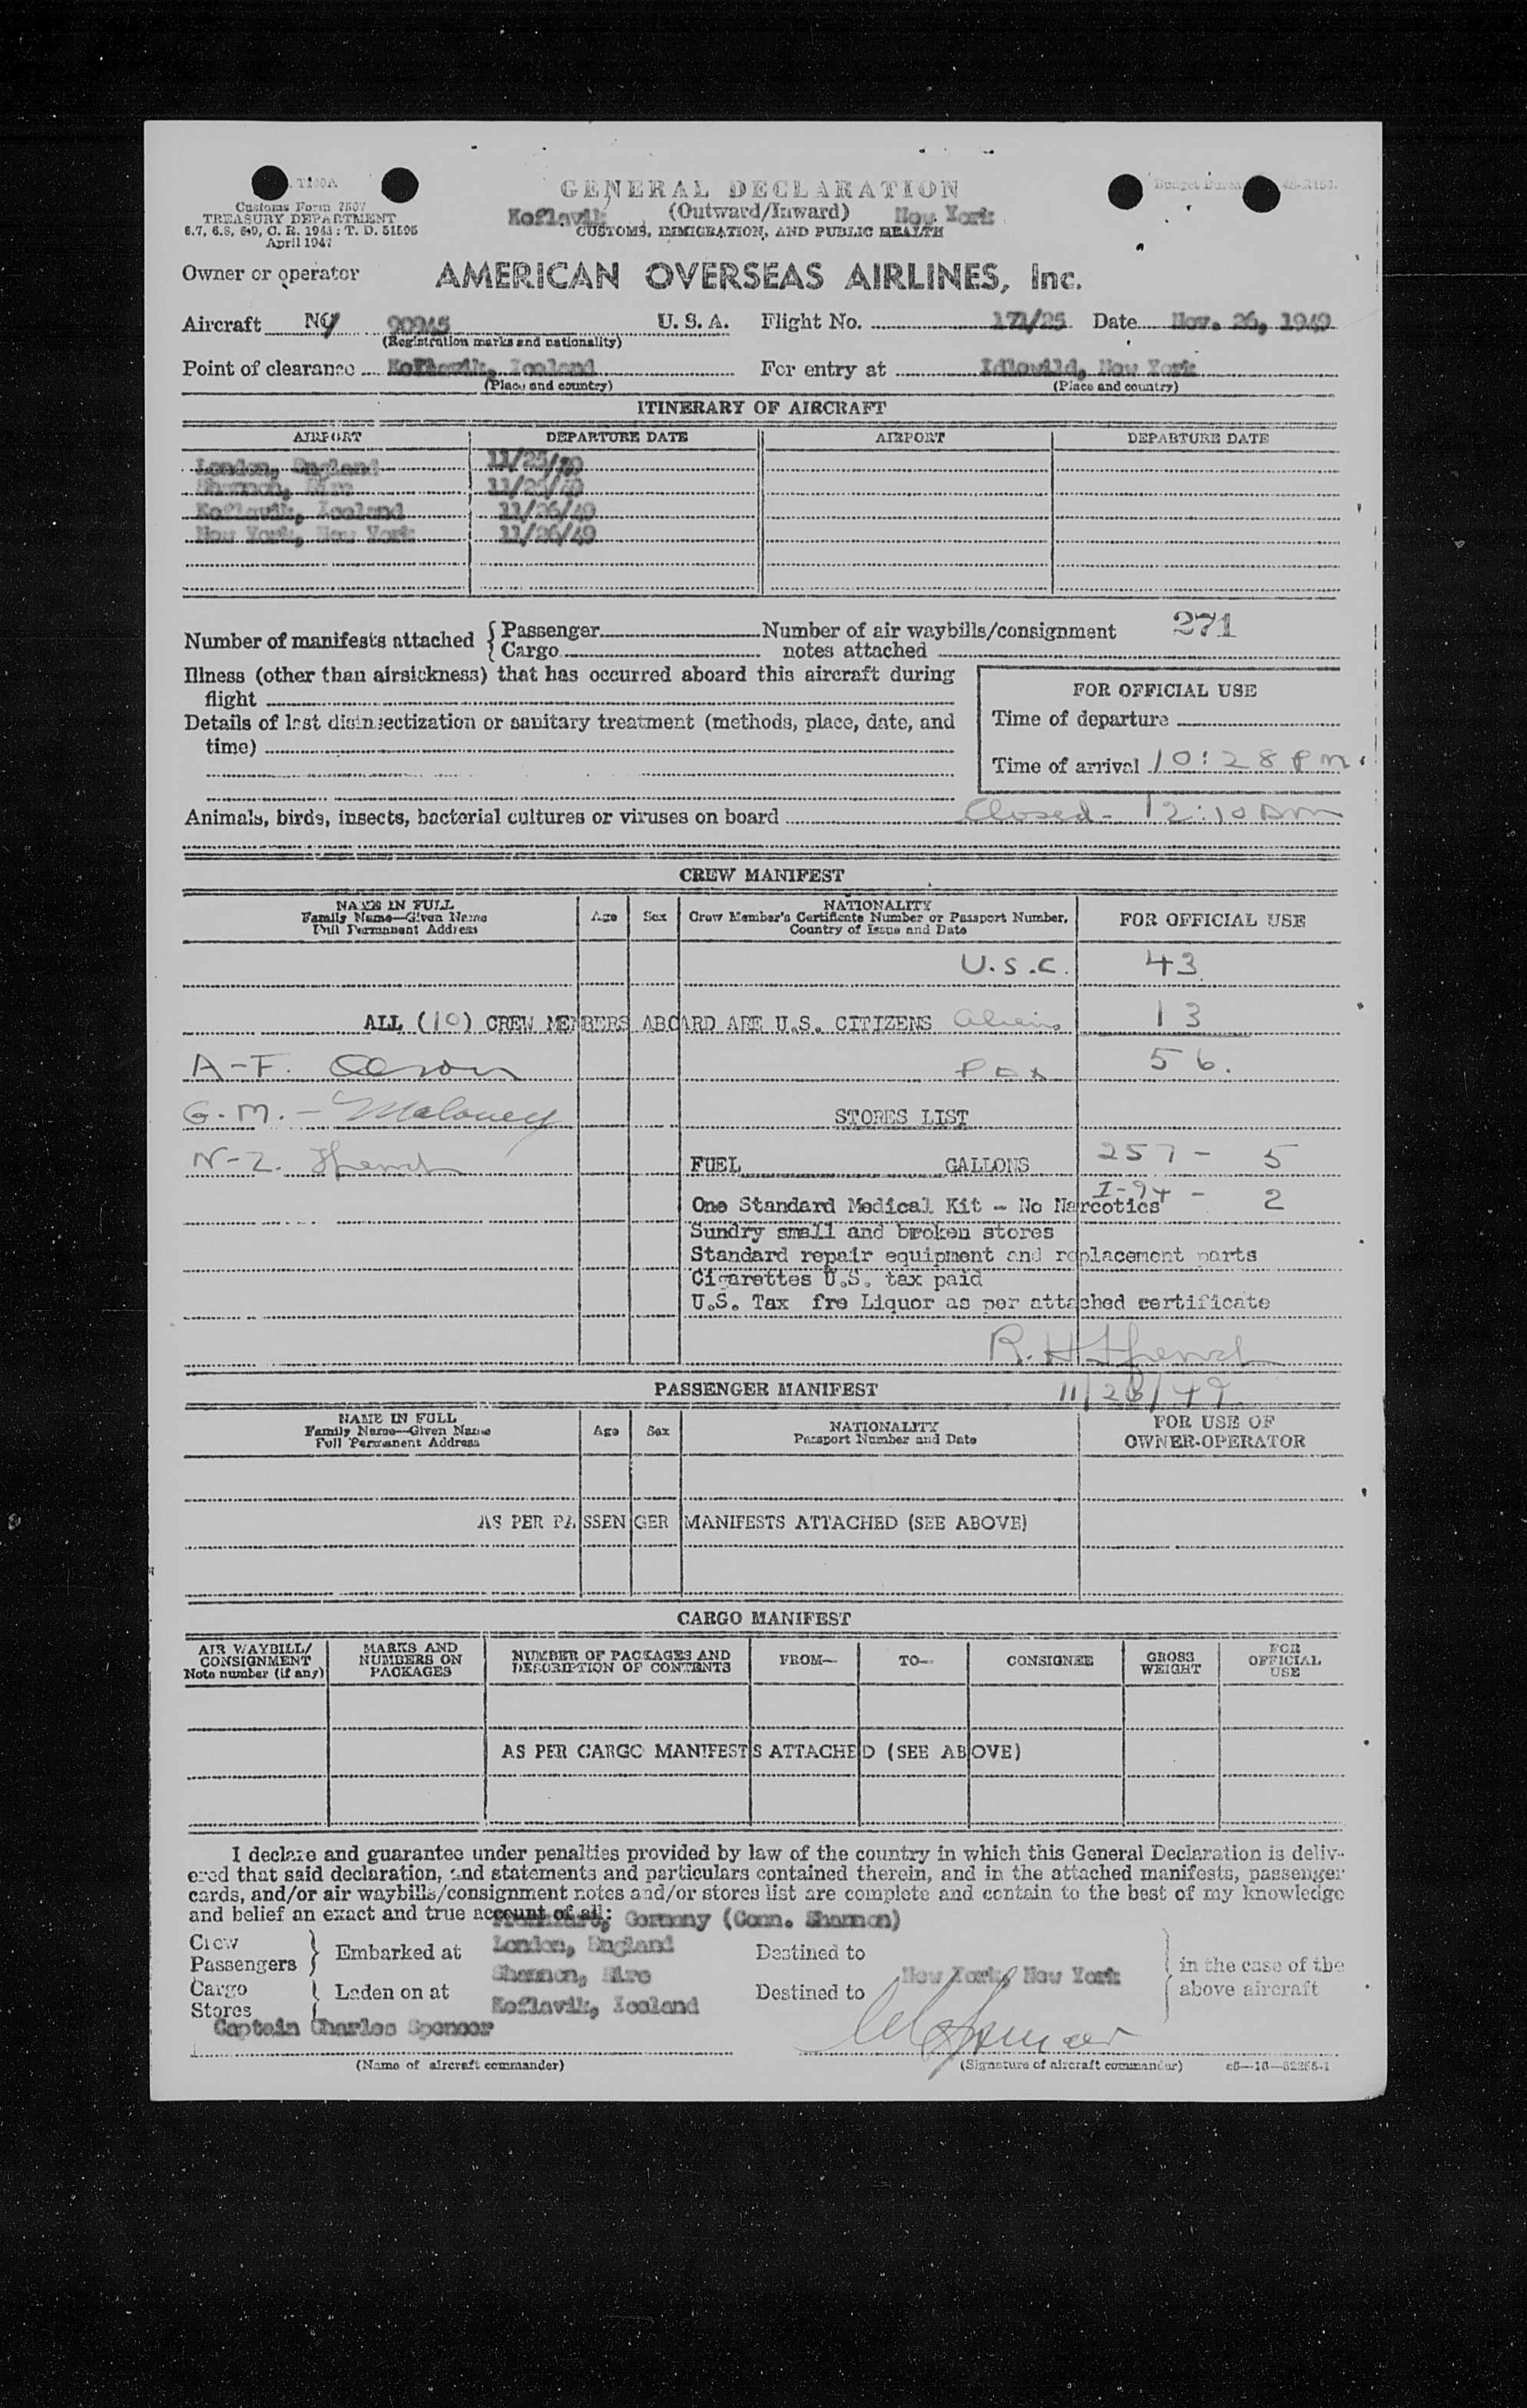 GENERAL DECLARATION
Customs Form 7507
TREASURY DEPARTMENT
6.7, 6.8, 6.9, C. R. 1943: T. D. 51595
April 1947
Keflavik (Outward/Inward) New York
CUSTOMS, IMMIGRATION, AND PUBLIC HEALTH
Owner or operator AMERICAN OVERSEAS AIRLINES, Inc.
Aircraft 90945 U. S. A. Flight No. 171/25 Date Nov. 26, 1949
(Registration marks and nationality)
Point of clearance Keflavik, Iceland For entry at Idlewild, New York
(Place and country) (Place and country)
ITINERARY OF AIRCRAFT
AIRPORT DEPARTURE DATE AIRPORT DEPARTURE DATE
London, England 11/25/49
Shannon, Eire 11/25/49
Keflavik, Iceland 11/26/49
New York, New York 11/26/49
271
Number of manifests attached { Passenger Number of air waybills/consignment
Cargo notes attached
Illness (other than airsickness) that has occurred aboard this aircraft during
flight
FOR OFFICIAL USE
Time of departure
Details of last disinsectization or sanitary treatment (methods, place, date, and
time)
Time of arrival 10:28 PM.
Animals, birds, insects, bacterial cultures or viruses on board Closed - 12:10 am
CREW MANIFEST
NAME IN FULL
Family Name—Given Name
Full Permanent Address
Age Sex
NATIONALITY
Crew Member's Certificate Number or Passport Number,
Country of Issue and Date
FOR OFFICIAL USE
U.S.C. 43
ALL (10) CREW MEMBERS ABOARD ARE U.S. CITIZENS Aliens 13
A-F. Pax 56.
G.M. - Maloney
STORES LIST
N-Z. French
FUEL GALLONS 257 - 5
I-94 - 2
One Standard Medical Kit - No Narcotics
Sundry small and broken stores
Standard repair equipment and replacement parts
Cigarettes U.S. tax paid
U.S. Tax fre Liquor as per attached certificate
R. H. French
11/26/49
PASSENGER MANIFEST
NAME IN FULL
Family Name—Given Name
Full Permanent Address
Age Sex
NATIONALITY
Passport Number and Date
FOR USE OF
OWNER-OPERATOR
AS PER PASSENGER MANIFESTS ATTACHED (SEE ABOVE)
CARGO MANIFEST
AIR WAYBILL/
CONSIGNMENT
Note number (if any)
MARKS AND
NUMBERS ON
PACKAGES
NUMBER OF PACKAGES AND
DESCRIPTION OF CONTENTS
FROM— TO— CONSIGNEE
GROSS
WEIGHT
FOR
OFFICIAL
USE
AS PER CARGO MANIFESTS ATTACHED (SEE ABOVE)
I declare and guarantee under penalties provided by law of the country in which this General Declaration is deliv-
ered that said declaration, and statements and particulars contained therein, and in the attached manifests, passenger
cards, and/or air waybills/consignment notes and/or stores list are complete and contain to the best of my knowledge
and belief an exact and true account of all:
Frankfurt, Germany (Conn. Shannon)
Crew
Passengers } Embarked at London, England Destined to
Shannon, Eire New York, New York
in the case of the
above aircraft
Cargo
Stores } Laden on at Keflavik, Iceland Destined to
Captain Charles Spencer
(Name of aircraft commander) (Signature of aircraft commander)